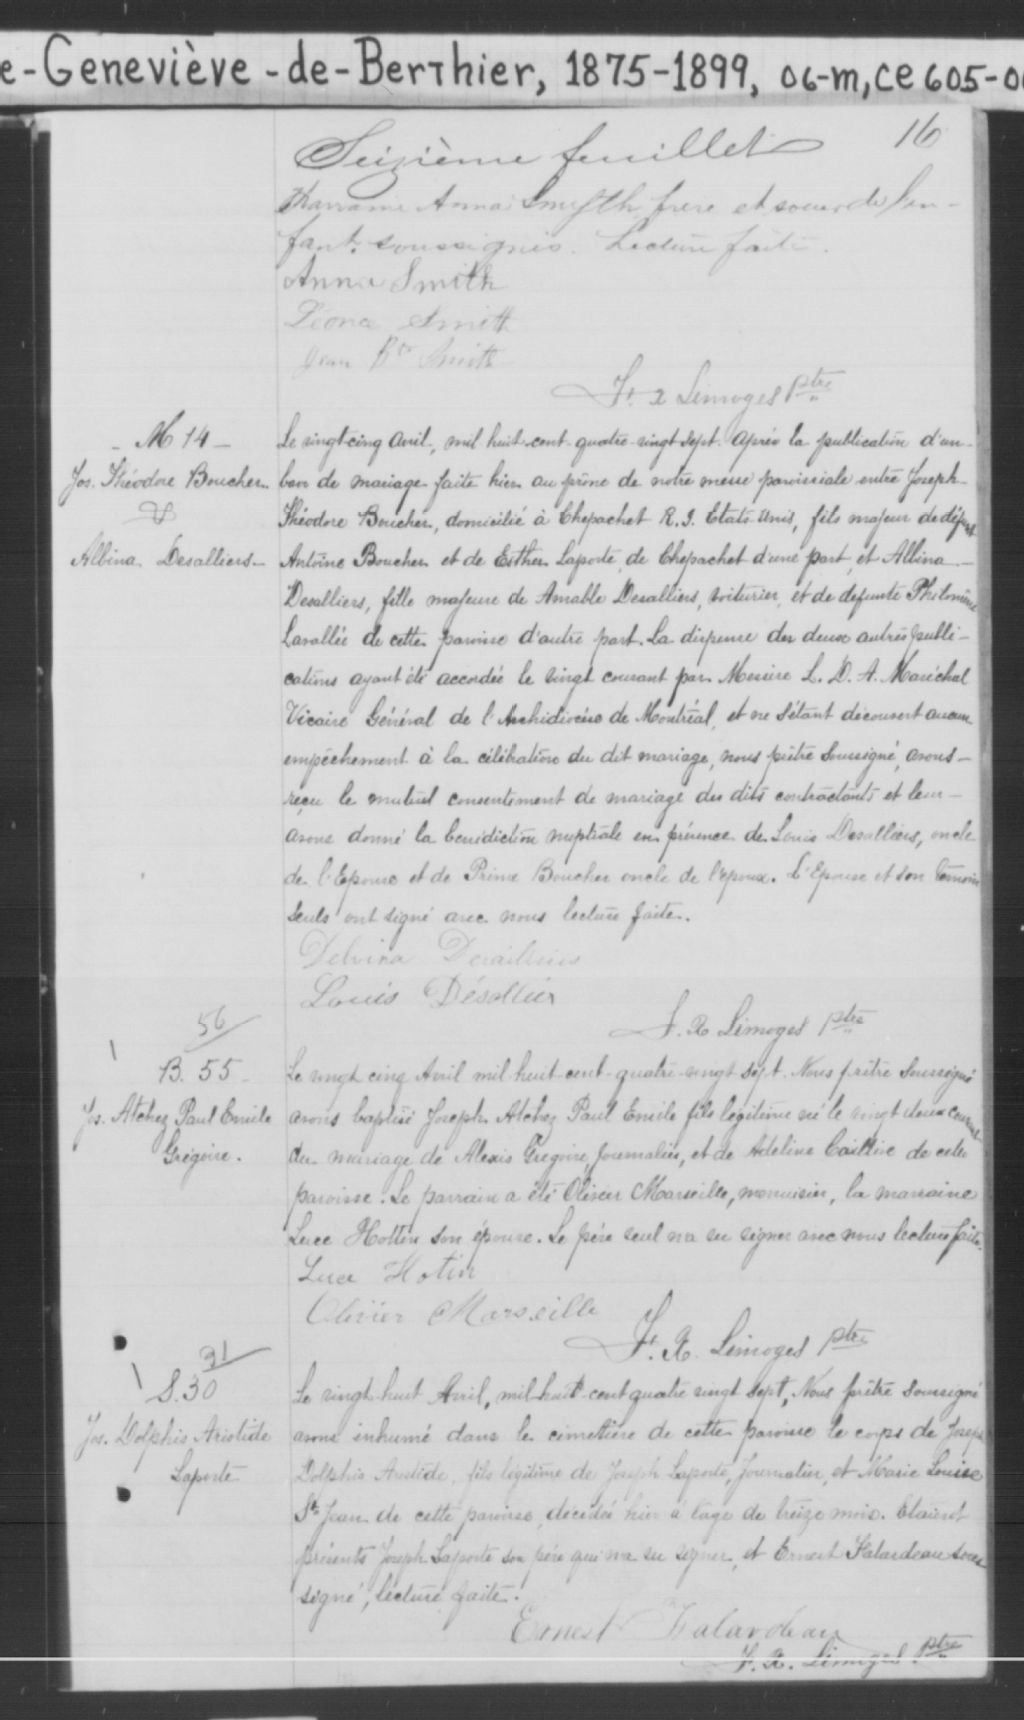 e-Geneviève-de-Berthier, 1875-1899, 06-m, ce 605-0
16
Seizième feuillet
Marraine Anna Smyth frère et soeur de l'en-
fant soussignés. Lecture faite.
Anna Smith
Léona Smith
Jean Bte Smith
F. X Limoges ptre
M 14
Jos. Théodore Boucher
&
Albina Desalliers
Le vingt-cinq Avril, mil huit-cent-quatre-vingt sept. Après la publication d'un-
ban de mariage faite hier au prône de notre messe paroissiale entre Joseph-
Théodore Boucher, domicilié à Chepachet R.I. Etats-Unis, fils majeur de défunt
Antoine Boucher et de Esther Laporte, de Chepachet d'une part, et Albina
Desalliers, fille majeure de Amable Desalliers, voiturier, et de defunte Philomène
Lavallée de cette paroisse d'autre part. La dispense des deux autres publi-
cations ayant été accordée le vingt courant par Messire L. D. A. Maréchal
Vicaire Général de l'Archidiocèse de Montréal, et ne s'étant découvert aucun
empêchement à la célébration du dit mariage, nous prêtre Soussigné, avons-
reçu le mutuel consentement de mariage des dits contractants et leur-
avons donné la benediction nuptiale en présence de Louis Desalliers, oncle
de l'Epouse et de Prime Boucher oncle de l'époux. L'Epouse et son témoin
seuls ont signé avec nous lecture faite.
Delvina Desailliers
Louis Désallier
F. X Limoges ptre
56
B. 55
Jos. Atchez Paul Emile
Grégoire.
Le vingt cinq Avril mil huit-cent-quatre-vingt sept. Nous prêtre Soussigné
avons baptisé Joseph Atchez Paul Emile fils légitime né le vingt deux courant
du mariage de Alexis Gregoire, Journalier, et de Adeline de cette
paroisse. Le parrain a été Olivier Marseille, menuisier, la marraine
Luce Hottin son épouse. Le père seul n'a su signer avec nous lecture faite.
Luce Hotin
Olivier Marseille
F. X. Limoges ptre
31
S. 30
Jos. Dolphis Aristide
Laporte
Le vingt-huit Avril, mil huit-cent quatre vingt sept, Nous prêtre Soussigné
avons inhumé dans le cimetière de cette paroisse le corps de Joseph
Dolphis Aristide, fils légitime de Joseph Laporte, Journalier, et Marie Louise
St Jean de cette paroisse, décédée hier à l'age de treize mois. Etaient
présents Joseph Laporte son père qui n'a su signer, et Ernest Falardeau sous
signé, lecture faite.
Ernest Falardeau
F. X. Limoges ptre